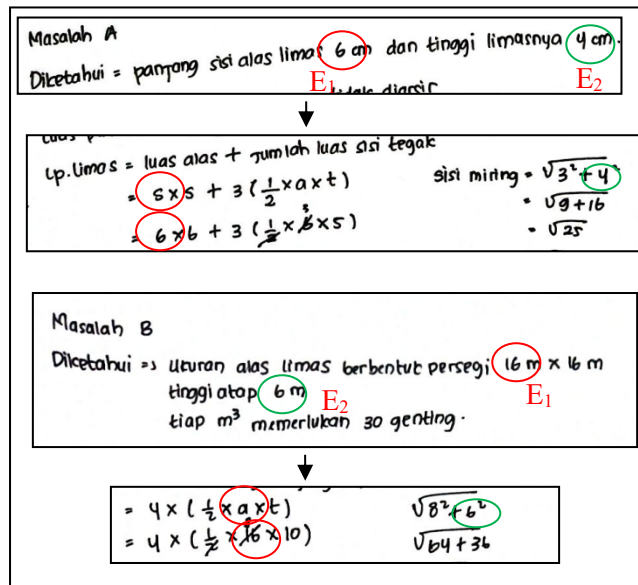 Masalah A
Diketahui = panjang sisi alas limas 6 cm dan tinggi limasnya 4 cm.
E₁ E₂
tidak diarsir
Lp. limas = luas alas + Jumlah luas sisi tegak
= s x s + 3 (½ x a x t)
= 6 x 6 + 3 (½ x 6 x 5)
3
sisi miring = √3² + 4²
= √9 + 16
= √25
Masalah B
Diketahui => Ukuran alas limas berbentuk persegi 16 m x 16 m
tinggi atap 6 m
E₂ E₁
tiap m³ memerlukan 30 genting.
= 4 x (½ x a x t)
= 4 x (½ x 16 x 10)
√8² + 6²
√64 + 36